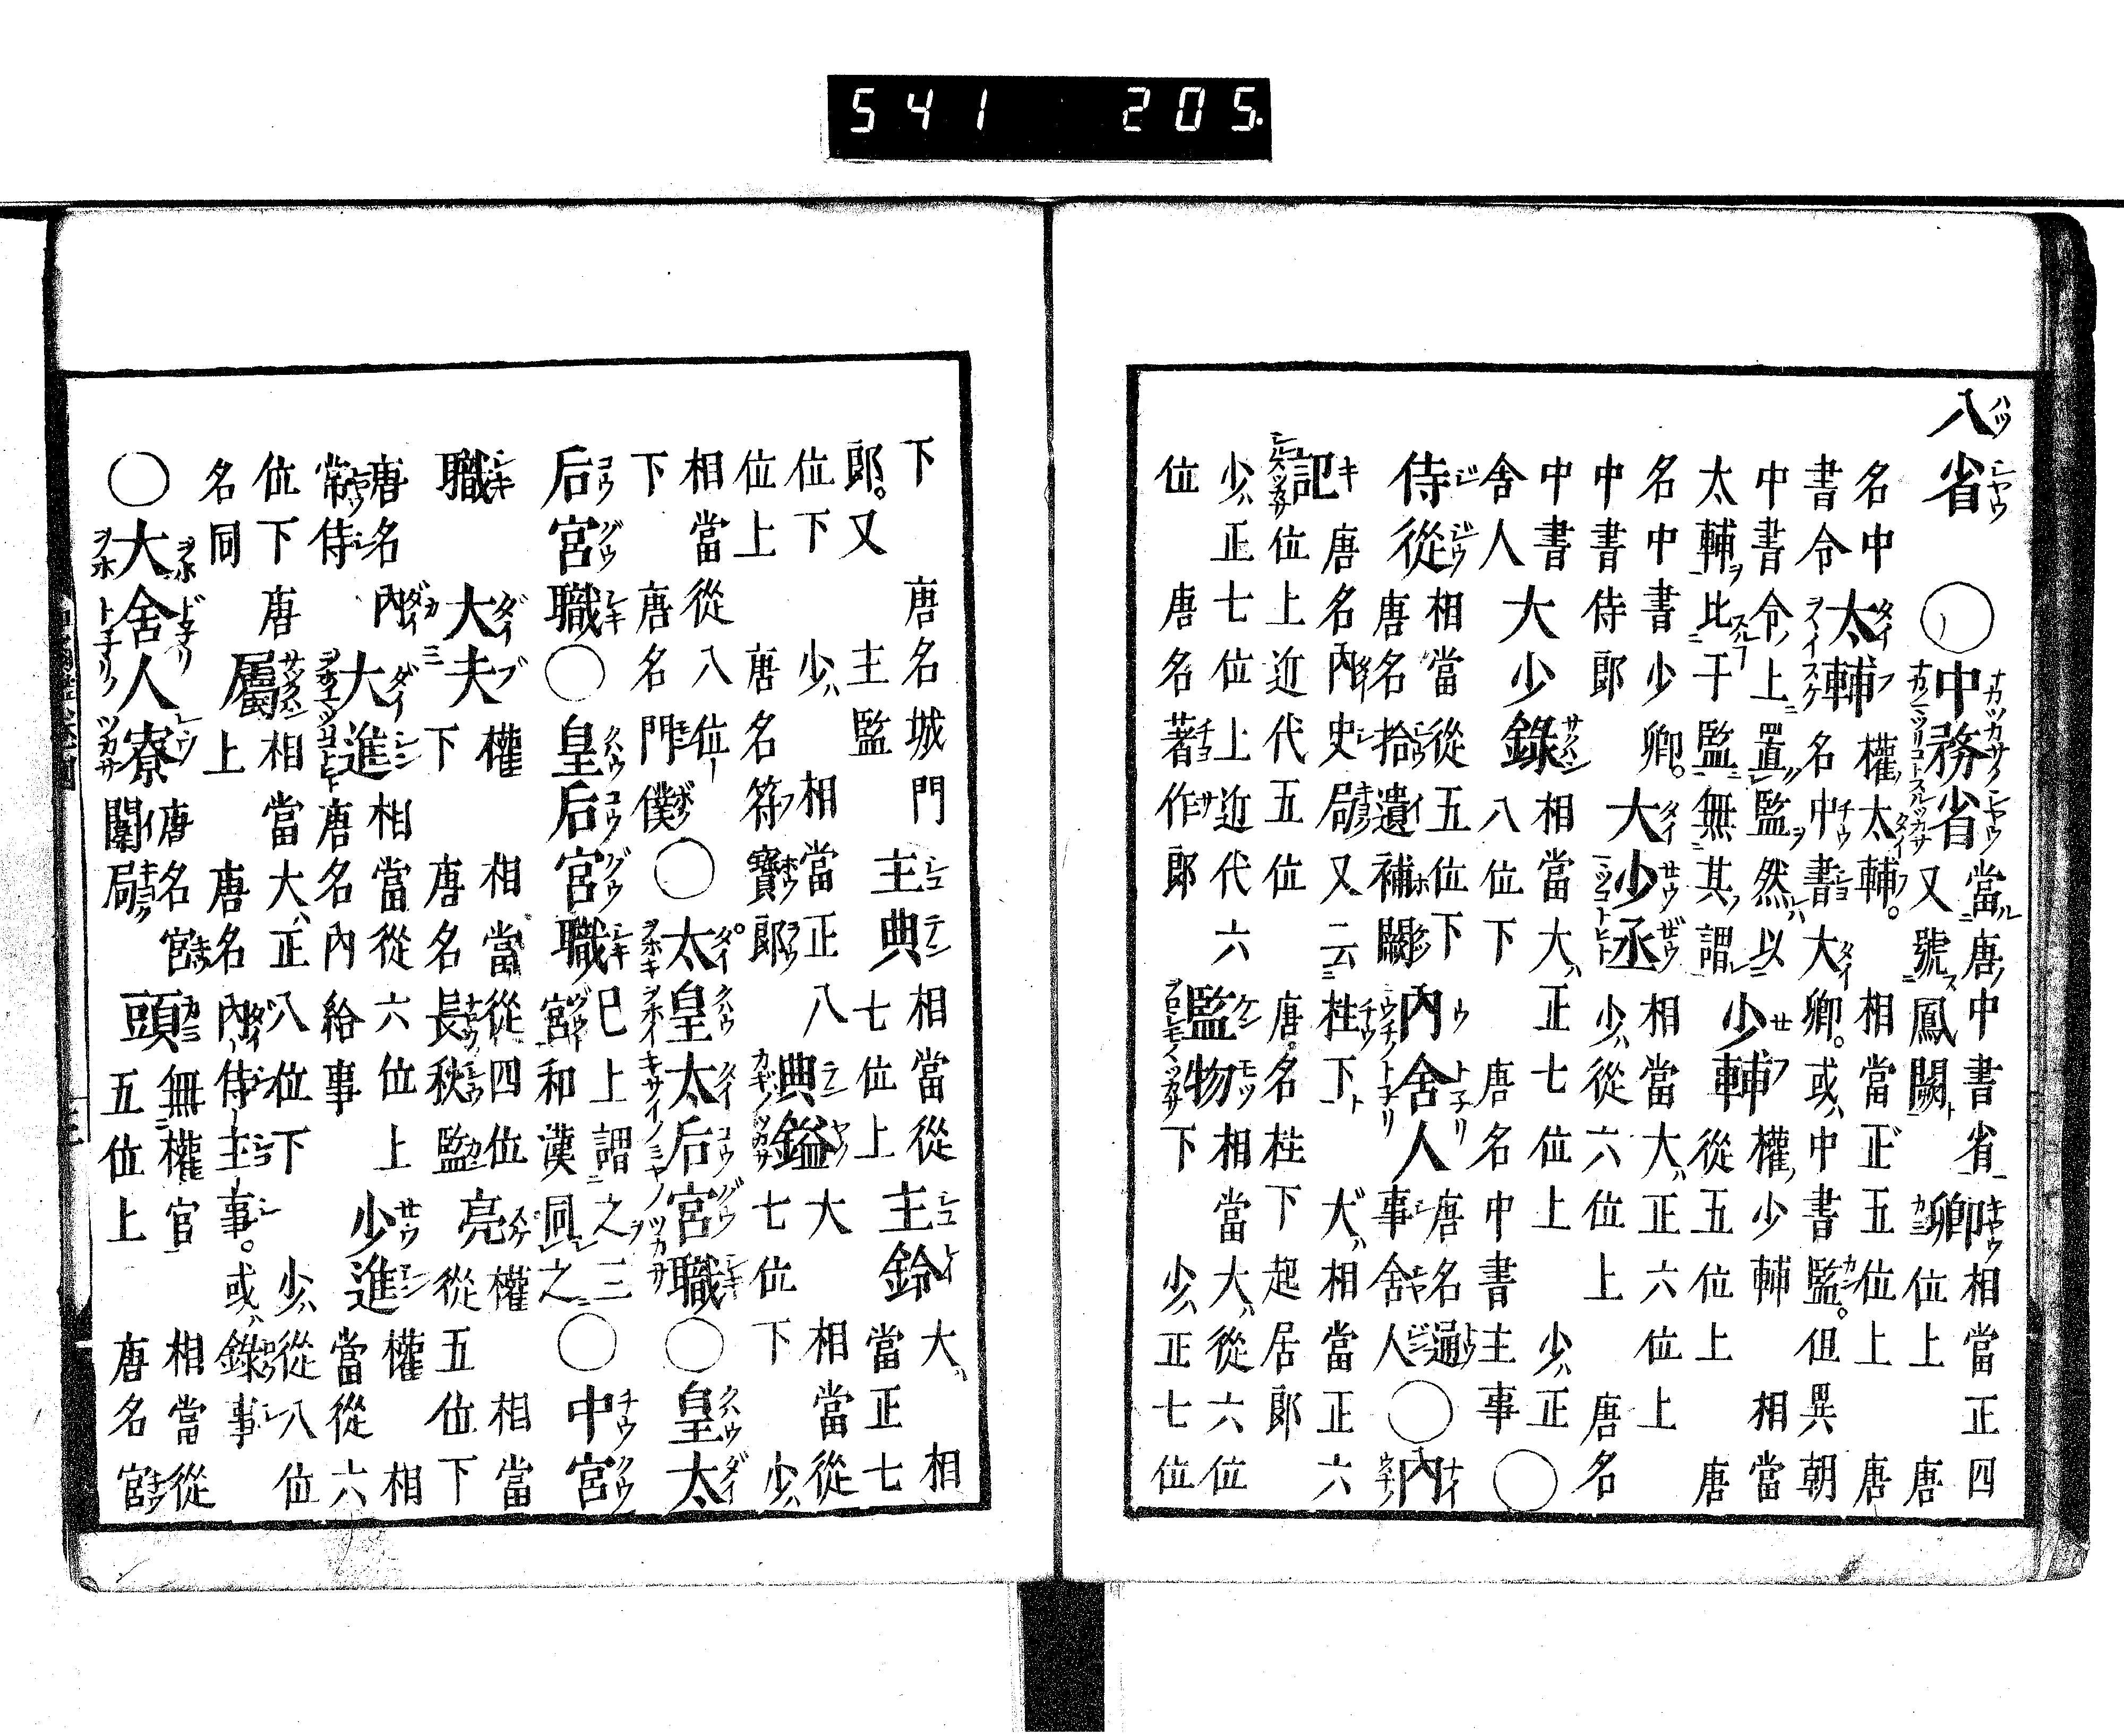 八省 ○中務省 當唐中書省 又號鳳闕 卿 相當正四 位上 唐
名中 書令 太輔 權太輔。相當正五位上 唐 名中書大卿。或中書監。但異朝
中書令上置監然以 太輔比于監無其謂 少輔 權少輔 相當 從五位上 唐
名中書少卿。 中書侍郎 大少丞 相當大正六位上 少從六位上 唐名
中書 舍人 大少錄 相當大正七位上 少正 八位下 唐名中書主事 ○
侍從 相當從五位下 唐名拾遺補闕 內舍人 唐名通 事舍人 ○內
記 唐名內史局又云柱下 大相當正六 位上近代五位 唐名柱下起居郎
少正七位上近代六 位 唐名著作郎 監物 相當大從六位 下 少正七位
下 唐名城門 郎。又主監 主典 相當從 七位上 主鈴 大相 當正七
位下 少相當正八 位上 唐名符寶郎 典鎰 大相當從 七位下 少
相當從八位 下 唐名門僕 ○太皇太后宮職 ○皇太
后宮職 ○皇后宮職 已上謂之三 宮和漢同之 ○中宮
職 大夫 權 相當從四位 下 唐名長秋監 亮 權 相當 從五位下
唐名內 常侍 大進 相當從六位上 唐名內給事 少進 權相 當從六
位下 唐 名同上 屬 相當大正八位下 少從八位 唐名內侍主事。或錄事
○大舍人寮 唐名宮 闈局 頭 無權官 相當從 五位上 唐名宮
541 205.